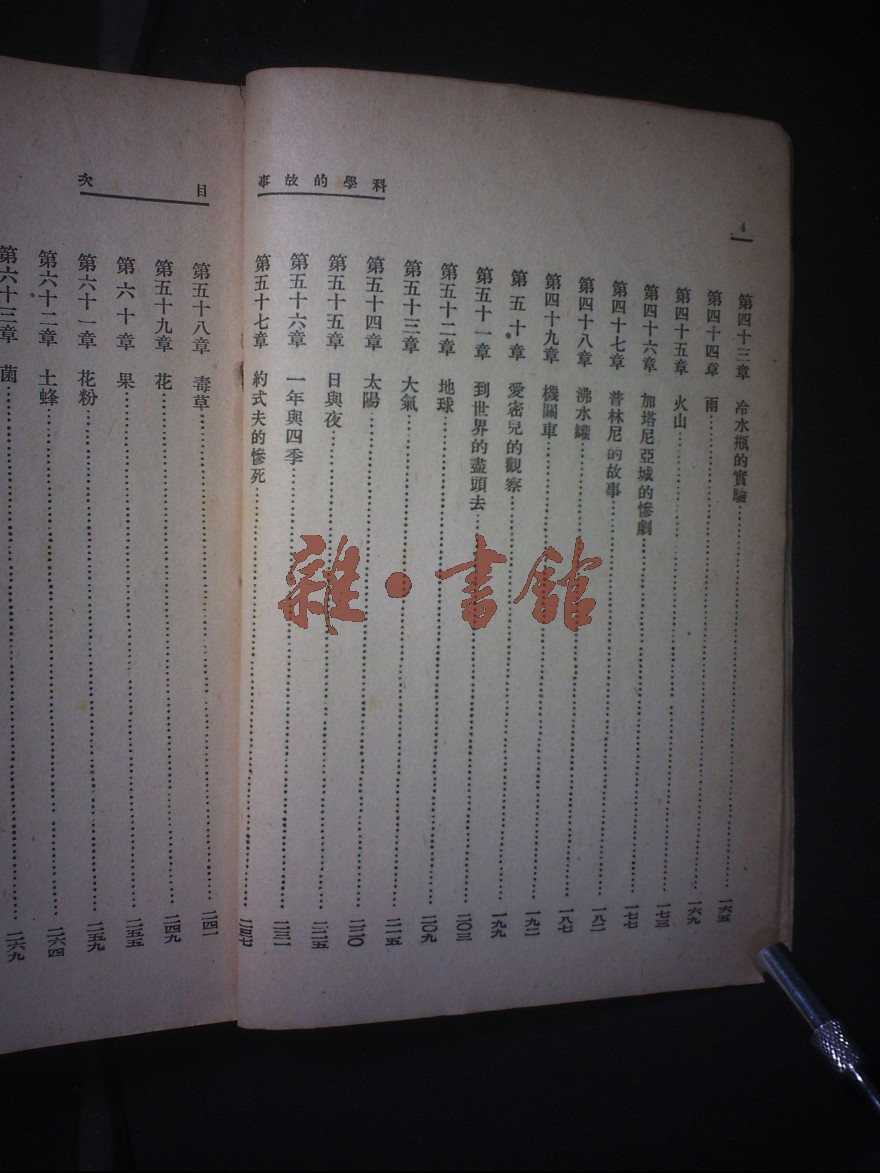 4
科學的故事
第四十三章　冷水瓶的實驗……一六五
第四十四章　雨……一六九
第四十五章　火山……一七三
第四十六章　加塔尼亞城的慘劇……一七七
第四十七章　普林尼的故事……一八二
第四十八章　沸水罐……一八七
第四十九章　機關車……一九二
第五十章　愛密兒的觀察……一九九
第五十一章　到世界的盡頭去……二〇三
第五十二章　地球……二〇九
第五十三章　大氣……二一五
第五十四章　太陽……二二〇
第五十五章　日與夜……二二五
第五十六章　一年與四季……二三二
第五十七章　約式夫的慘死……二三七
目次
第五十八章　毒草……二四二
第五十九章　花……二四九
第六十章　果……二五五
第六十一章　花粉……二五九
第六十二章　土蜂……二六四
第六十三章　菌……二六九
雜·書館